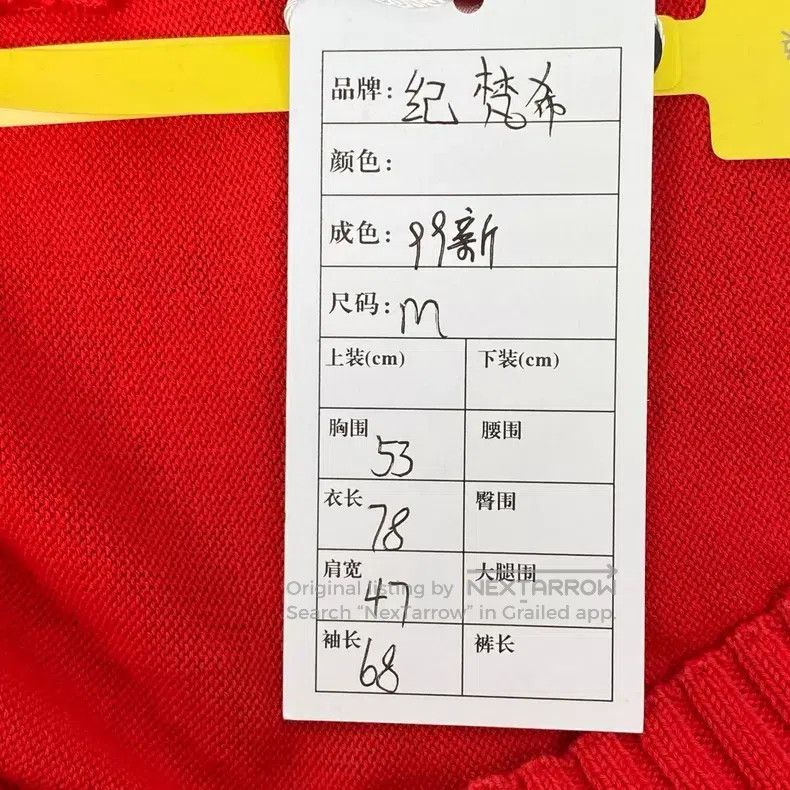 品牌: 纪梵希
颜色:
成色: 99新
尺码: m
上装(cm) 下装(cm)
胸围 53 腰围
衣长 78 臀围
肩宽 47 大腿围
Original listing by NEXTARROW
Search “NexTarrow” in Grailed app.
袖长 68 裤长